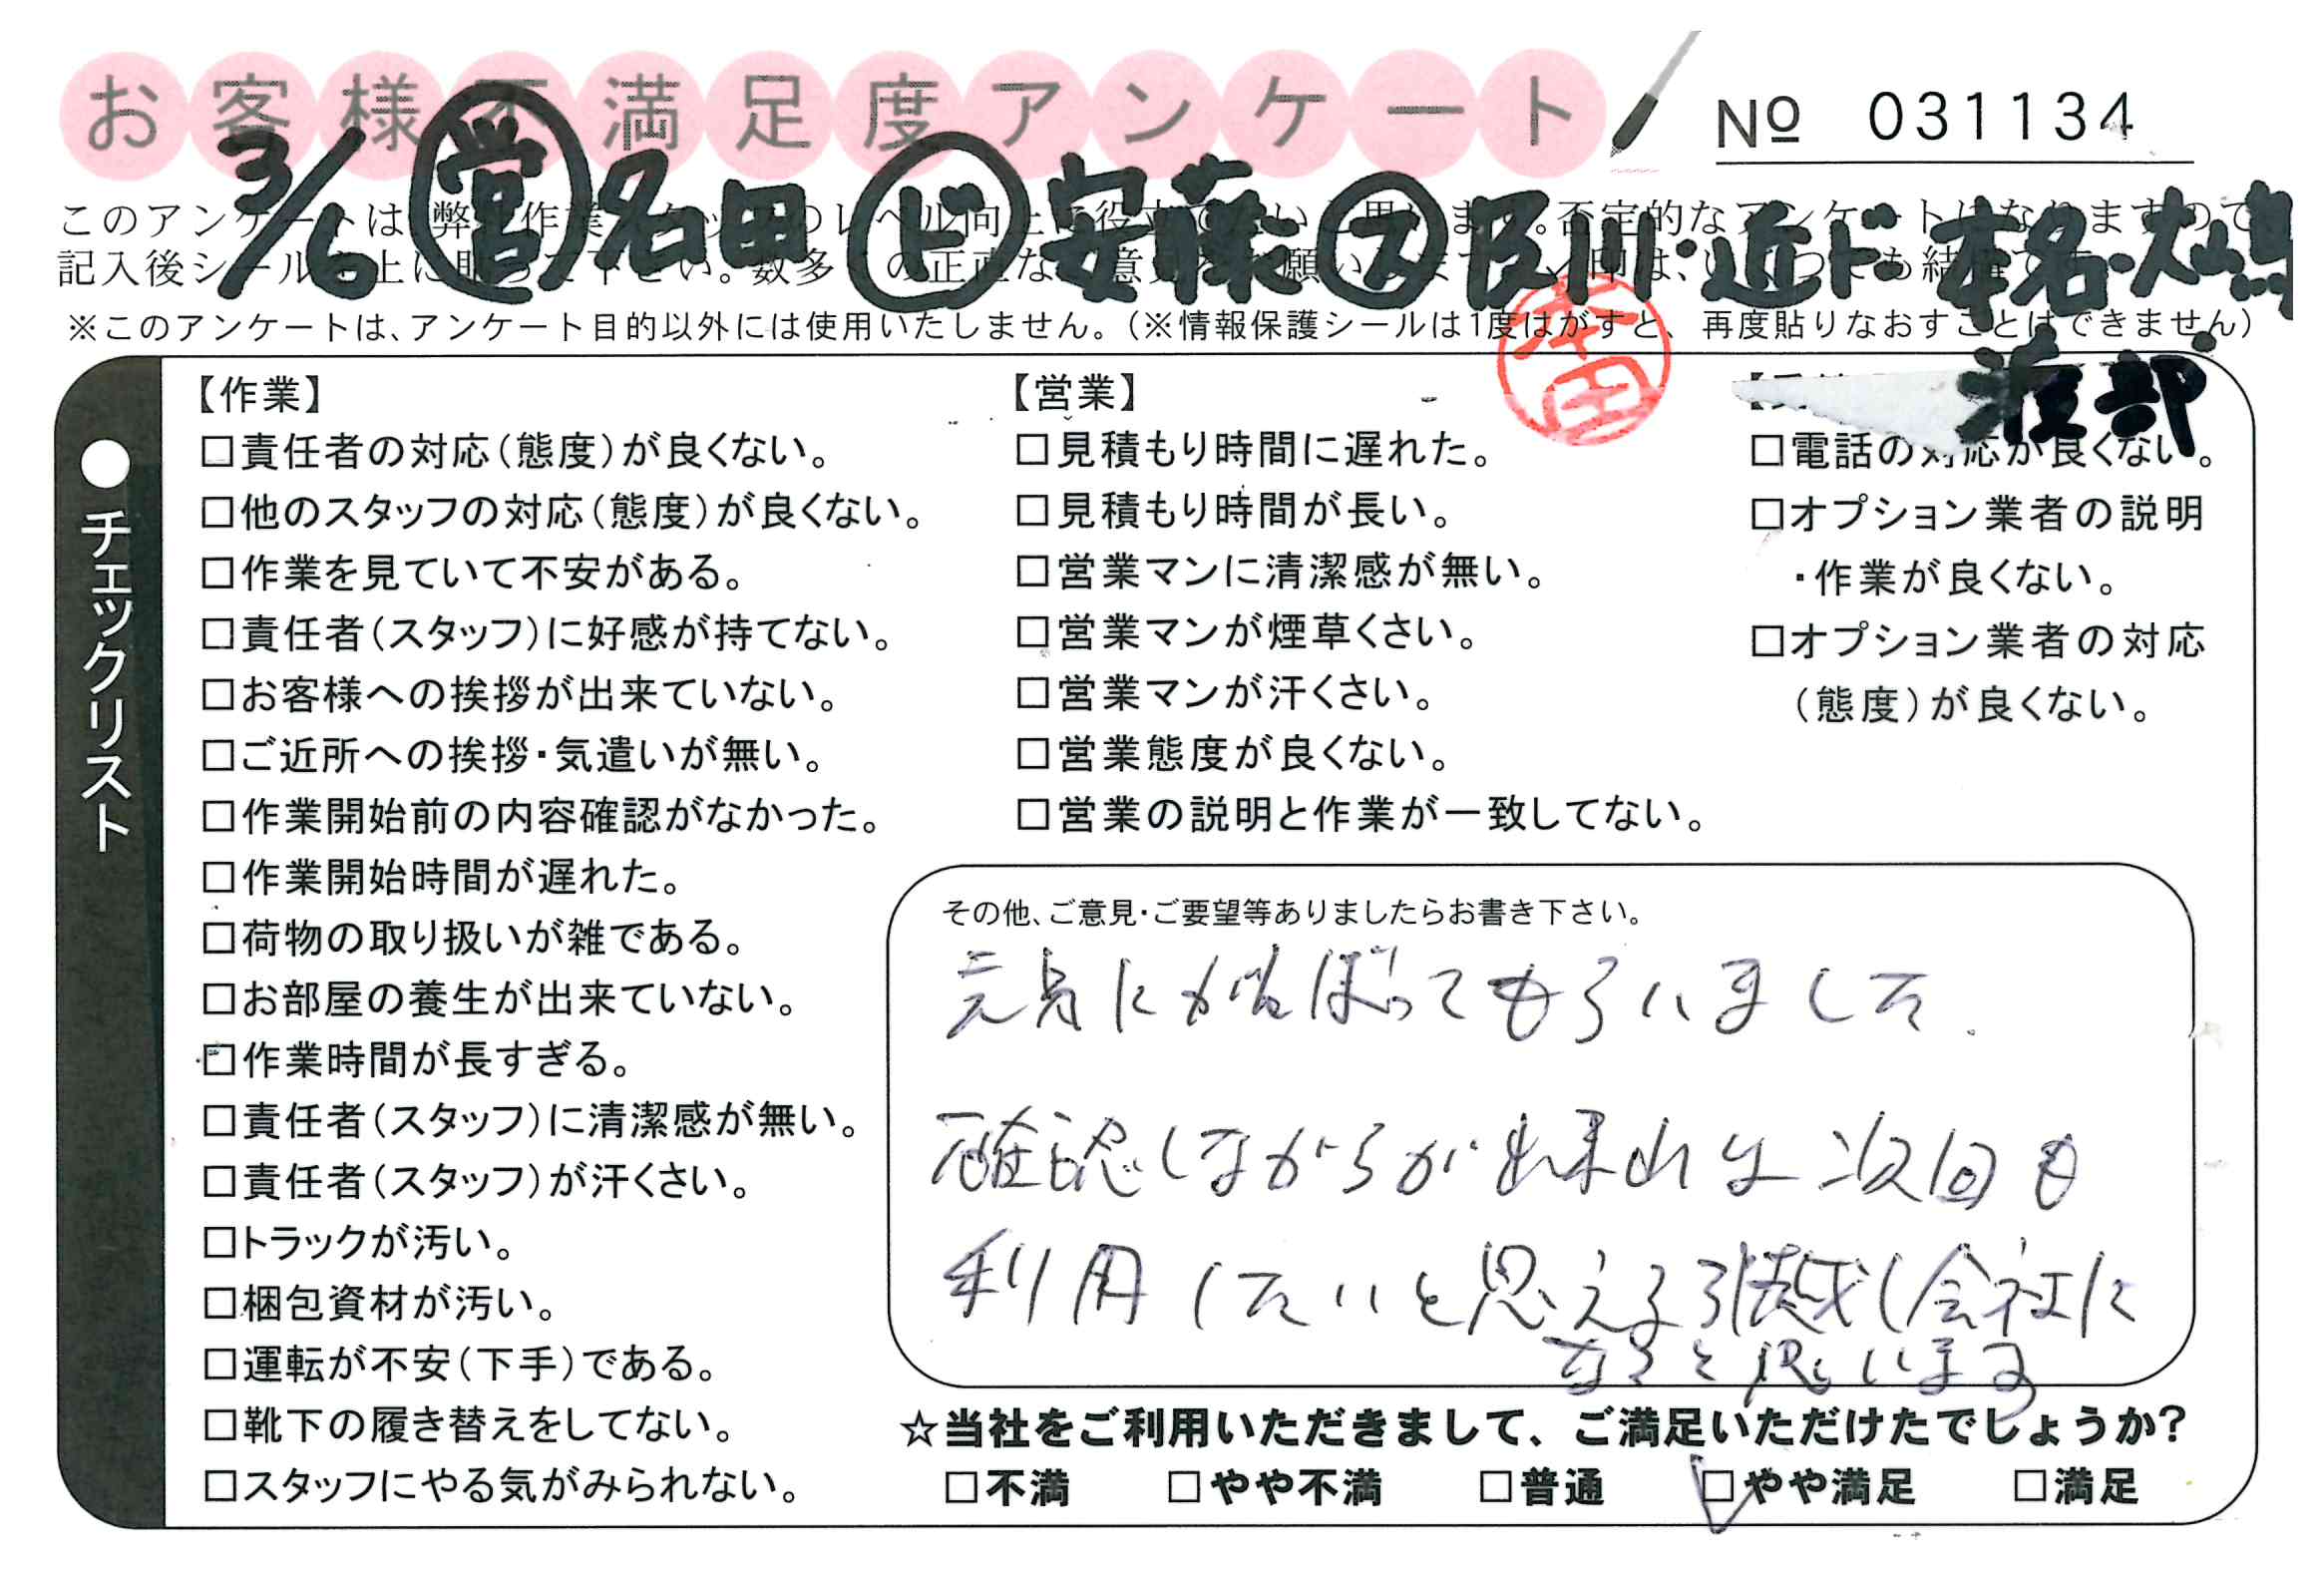 お客様不満足度アンケート
№ 031134
3/6 営 名田 ド 安藤 ス 及川・近ド・本名・大嶋・
渡部
※このアンケートは、アンケート目的以外には使用いたしません。(※情報保護シールは1度はがすと、再度貼りなおすことはできません)
●チェックリスト
【作業】
□責任者の対応(態度)が良くない。
□他のスタッフの対応(態度)が良くない。
□作業を見ていて不安がある。
□責任者(スタッフ)に好感が持てない。
□お客様への挨拶が出来ていない。
□ご近所への挨拶・気遣いが無い。
□作業開始前の内容確認がなかった。
□作業開始時間が遅れた。
□荷物の取り扱いが雑である。
□お部屋の養生が出来ていない。
□作業時間が長すぎる。
□責任者(スタッフ)に清潔感が無い。
□責任者(スタッフ)が汗くさい。
□トラックが汚い。
□梱包資材が汚い。
□運転が不安(下手)である。
□靴下の履き替えをしてない。
□スタッフにやる気がみられない。
【営業】
□見積もり時間に遅れた。
□見積もり時間が長い。
□営業マンに清潔感が無い。
□営業マンが煙草くさい。
□営業マンが汗くさい。
□営業態度が良くない。
□営業の説明と作業が一致してない。
□電話の対応が良くない。
□オプション業者の説明
・作業が良くない。
□オプション業者の対応
(態度)が良くない。
その他、ご意見・ご要望等ありましたらお書き下さい。
元気にがんばってもらいました.
確認しながらが出来れば次回も
利用したいと思える引越し会社に
なると思います
☆当社をご利用いただきまして、ご満足いただけたでしょうか?
□不満 □やや不満 □普通 ☑やや満足 □満足